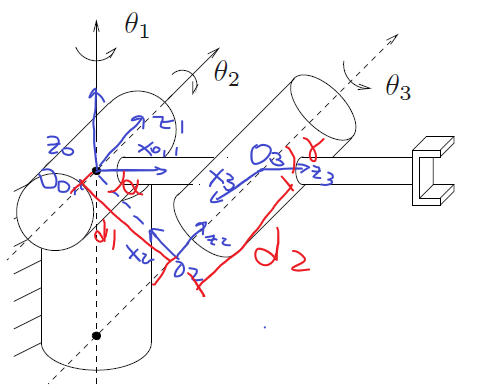 θ₁
θ₂
θ₃
z₀
z₁
x₀,₁
O₀,₁
α
d₁
x₂
O₂
z₂
O₃
x₃
z₃
γ
d₂